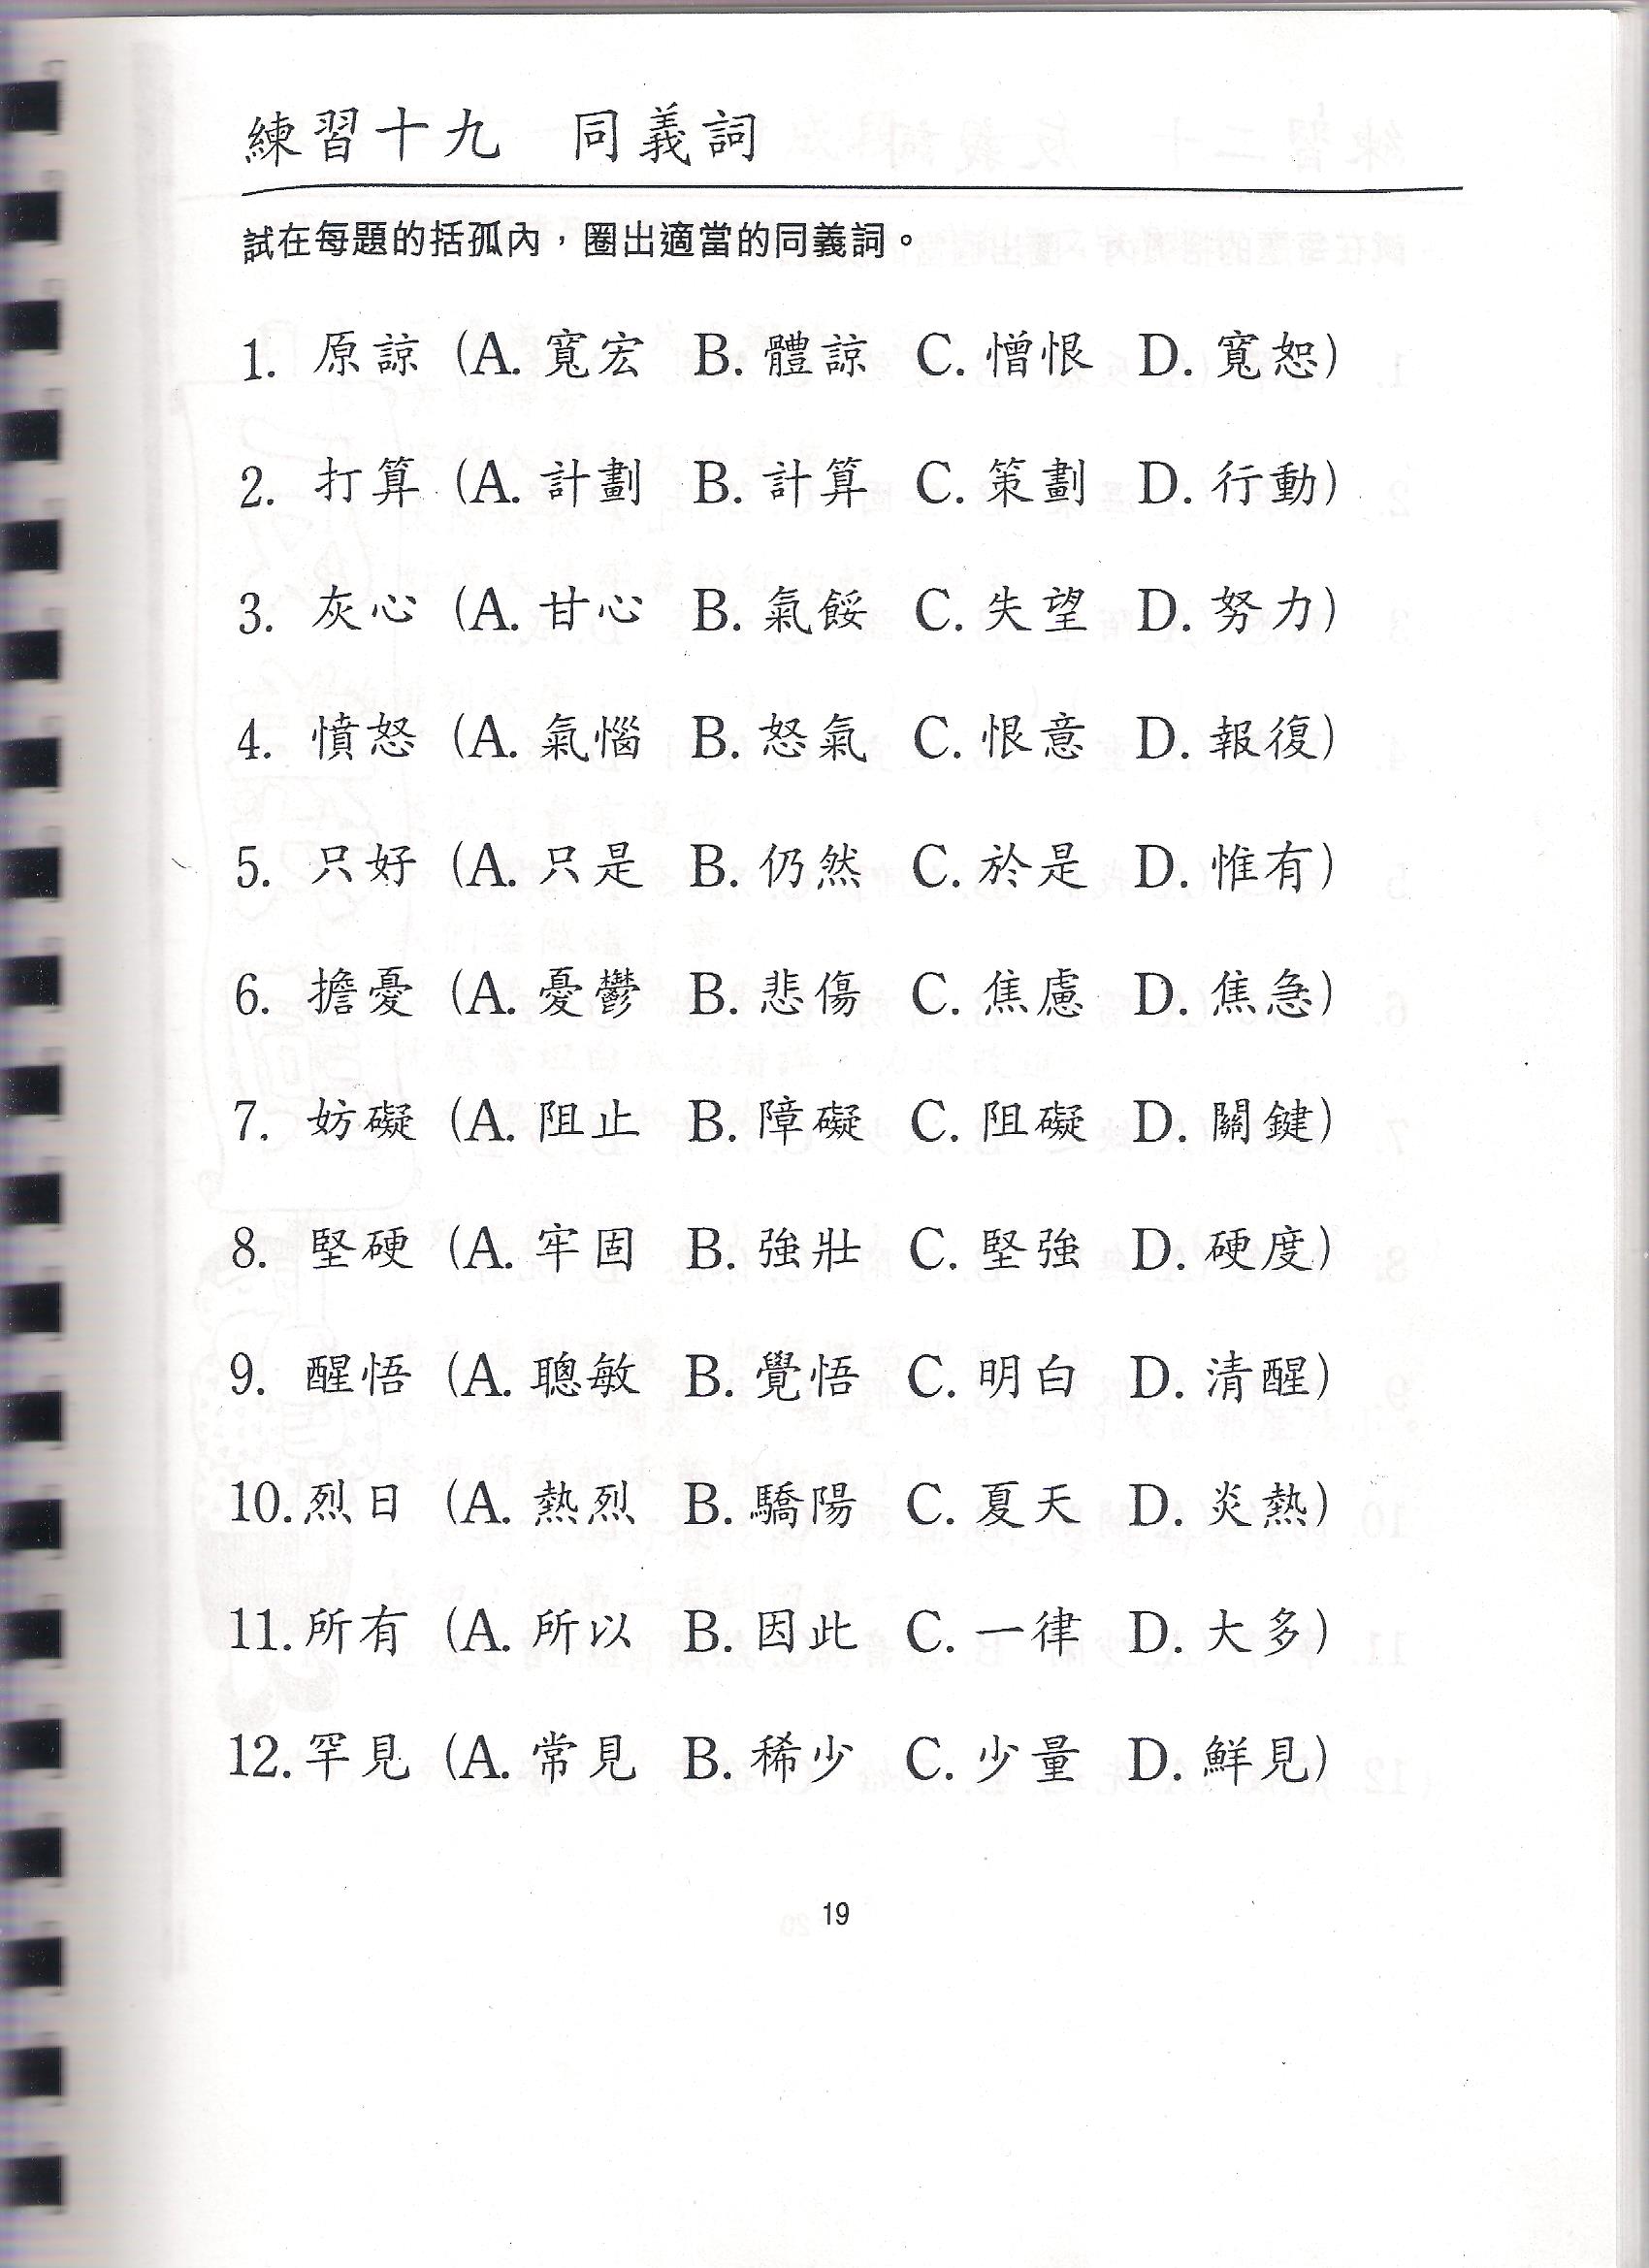 練習十九 同義詞
試在每題的括孤內，圈出適當的同義詞。
1. 原諒 (A. 寬宏 B. 體諒 C. 憎恨 D. 寬恕)
2. 打算 (A. 計劃 B. 計算 C. 策劃 D. 行動)
3. 灰心 (A. 甘心 B. 氣餒 C. 失望 D. 努力)
4. 憤怒 (A. 氣惱 B. 怒氣 C. 恨意 D. 報復)
5. 只好 (A. 只是 B. 仍然 C. 於是 D. 惟有)
6. 擔憂 (A. 憂鬱 B. 悲傷 C. 焦慮 D. 焦急)
7. 妨礙 (A. 阻止 B. 障礙 C. 阻礙 D. 關鍵)
8. 堅硬 (A. 牢固 B. 強壯 C. 堅強 D. 硬度)
9. 醒悟 (A. 聰敏 B. 覺悟 C. 明白 D. 清醒)
10. 烈日 (A. 熱烈 B. 驕陽 C. 夏天 D. 炎熱)
11. 所有 (A. 所以 B. 因此 C. 一律 D. 大多)
12. 罕見 (A. 常見 B. 稀少 C. 少量 D. 鮮見)
19